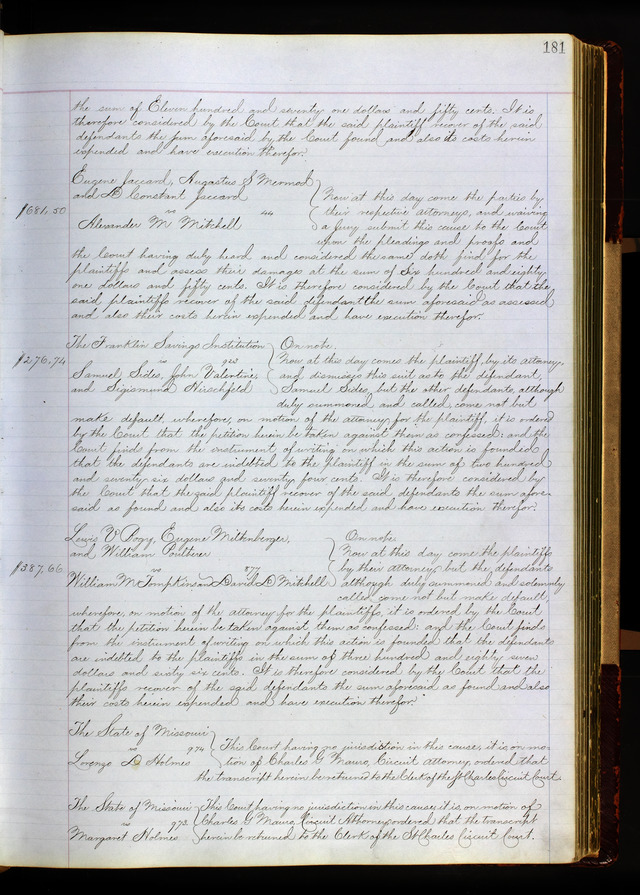 181
the sum of Eleven hundred and seventy one dollars and fifty cents. It is
therefore considered by the Court that the said plaintiff recover of the said
defendants the sum aforesaid by the Court found and also its costs herein
expended and have execution therefor.
Eugene Jaccard, Augustus S Mermod
and D Constant Jaccard
$681,50
vs 44
Alexander M Mitchell
Now at this day come the parties by
their respective attorneys, and waiving
a jury submit this cause to the Court
upon the pleadings and proofs and
the Court having duly heard and considered the same doth find for the
plaintiffs and assess their damages at the sum of Six hundred and eighty
one dollars and fifty cents. It is therefore considered by the Court that the
said plaintiffs recover of the said defendant the sum aforesaid as assessed
and also their costs herein expended and have execution therefor.
The Franklin Savings Institution
$276,74
vs
Samuel Sides, John Valentine,
and Sigismund Hirschfeld
On note.
Now at this day comes the plaintiff, by its attorney,
and dismisses this suit as to the defendant,
Samuel Sides, but the other defendants, although
duly summoned and called, come not but
make default, wherefore, on motion of the attorney for the plaintiff, it is ordered
by the Court that the petition herein be taken against them as confessed: and the
Court find from the instrument of writing on which this action is founded
that the defendants are indebted to the plaintiff in the sum of two hundred
and seventy six dollars and seventy four cents. It is therefore considered by
the Court that the said plaintiff recover of the said defendants the sum afore-
said as found and also its costs herein expended and have execution therefor.
Lewis V Bogy, Eugene Miltenberger,
and William Poulterer
$387,66
vs 877
William M Tompkins and David D Mitchell
On note.
Now at this day come the plaintiffs
by their attorney, but the defendants
although duly summoned and solemnly
called come not but make default,
wherefore, on motion of the attorney for the plaintiffs, it is ordered by the Court
that the petition herein be taken against them as confessed: and the Court finds
from the instrument of writing on which this action is founded that the defendants
are indebted to the plaintiffs in the sum of three hundred and eighty seven
dollars and sixty six cents. It is therefore considered by the Court that the
plaintiffs recover of the said defendants the sum aforesaid as found and also
their costs herein expended and have execution therefor.
The State of Missouri
vs 974
Lorenzo D Holmes
This Court having no jurisdiction in this cause, it is on mo-
tion of Charles G Mauro, Circuit attorney, ordered that
the transcript herein be returned to the Clerk of the St Charles Circuit Court.
The State of Missouri
vs 973
Margaret Holmes
This Court having no jurisdiction in this cause it is, on motion of
Charles G Mauro, Circuit Attorney, ordered that the transcript
herein be returned to the Clerk of the St Charles Circuit Court.